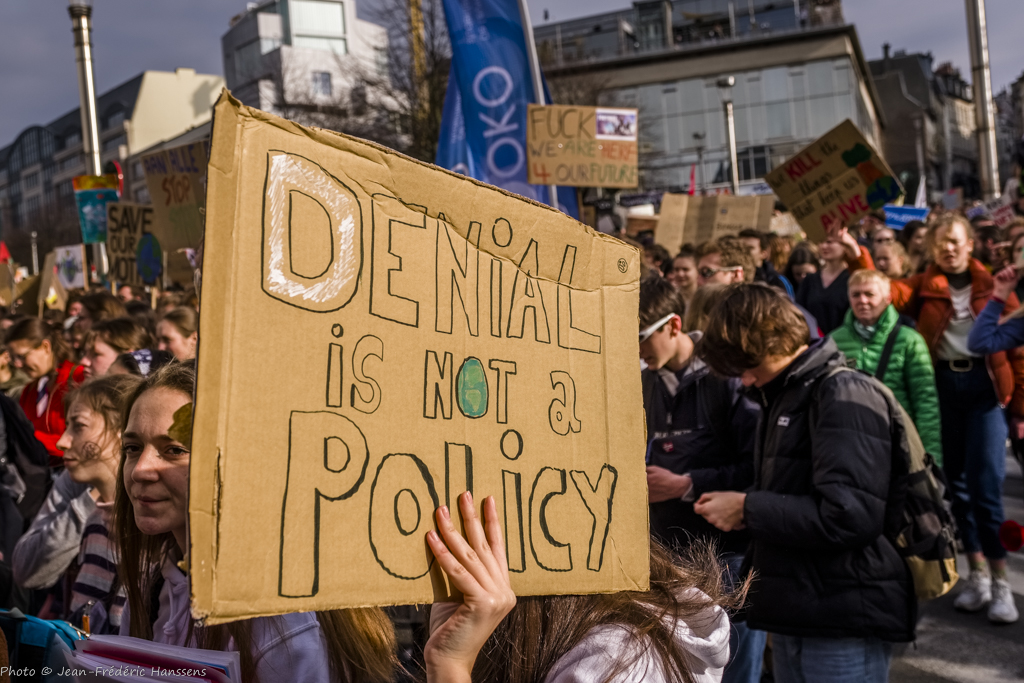 OKO
FUCK
WE ARE HERE
4 OUR FUTURE
KILL the
ALIVE
STOP
SAVE
OUR
DENIAL
iS NOT a
POLiCY
Photo © Jean-Frédéric Hanssens